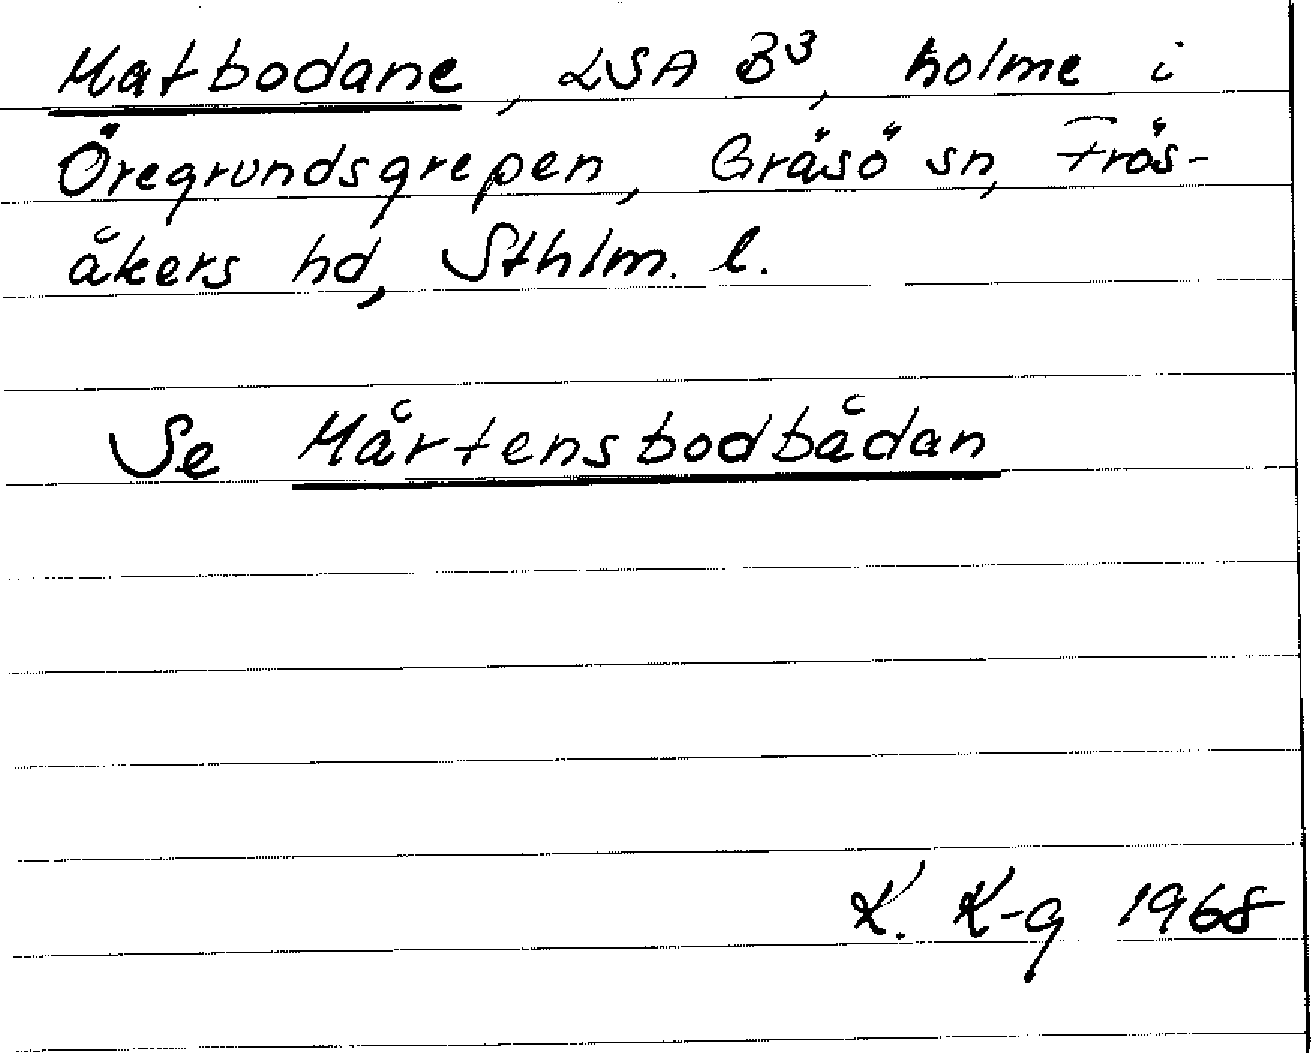 Matbodane, LSA B³, holme i
Öregrundsgrepen, Gräsö sn, Frös-
åkers hd, Sthlm. l.
Se Mårtensbodbådan
K. K-g 1968